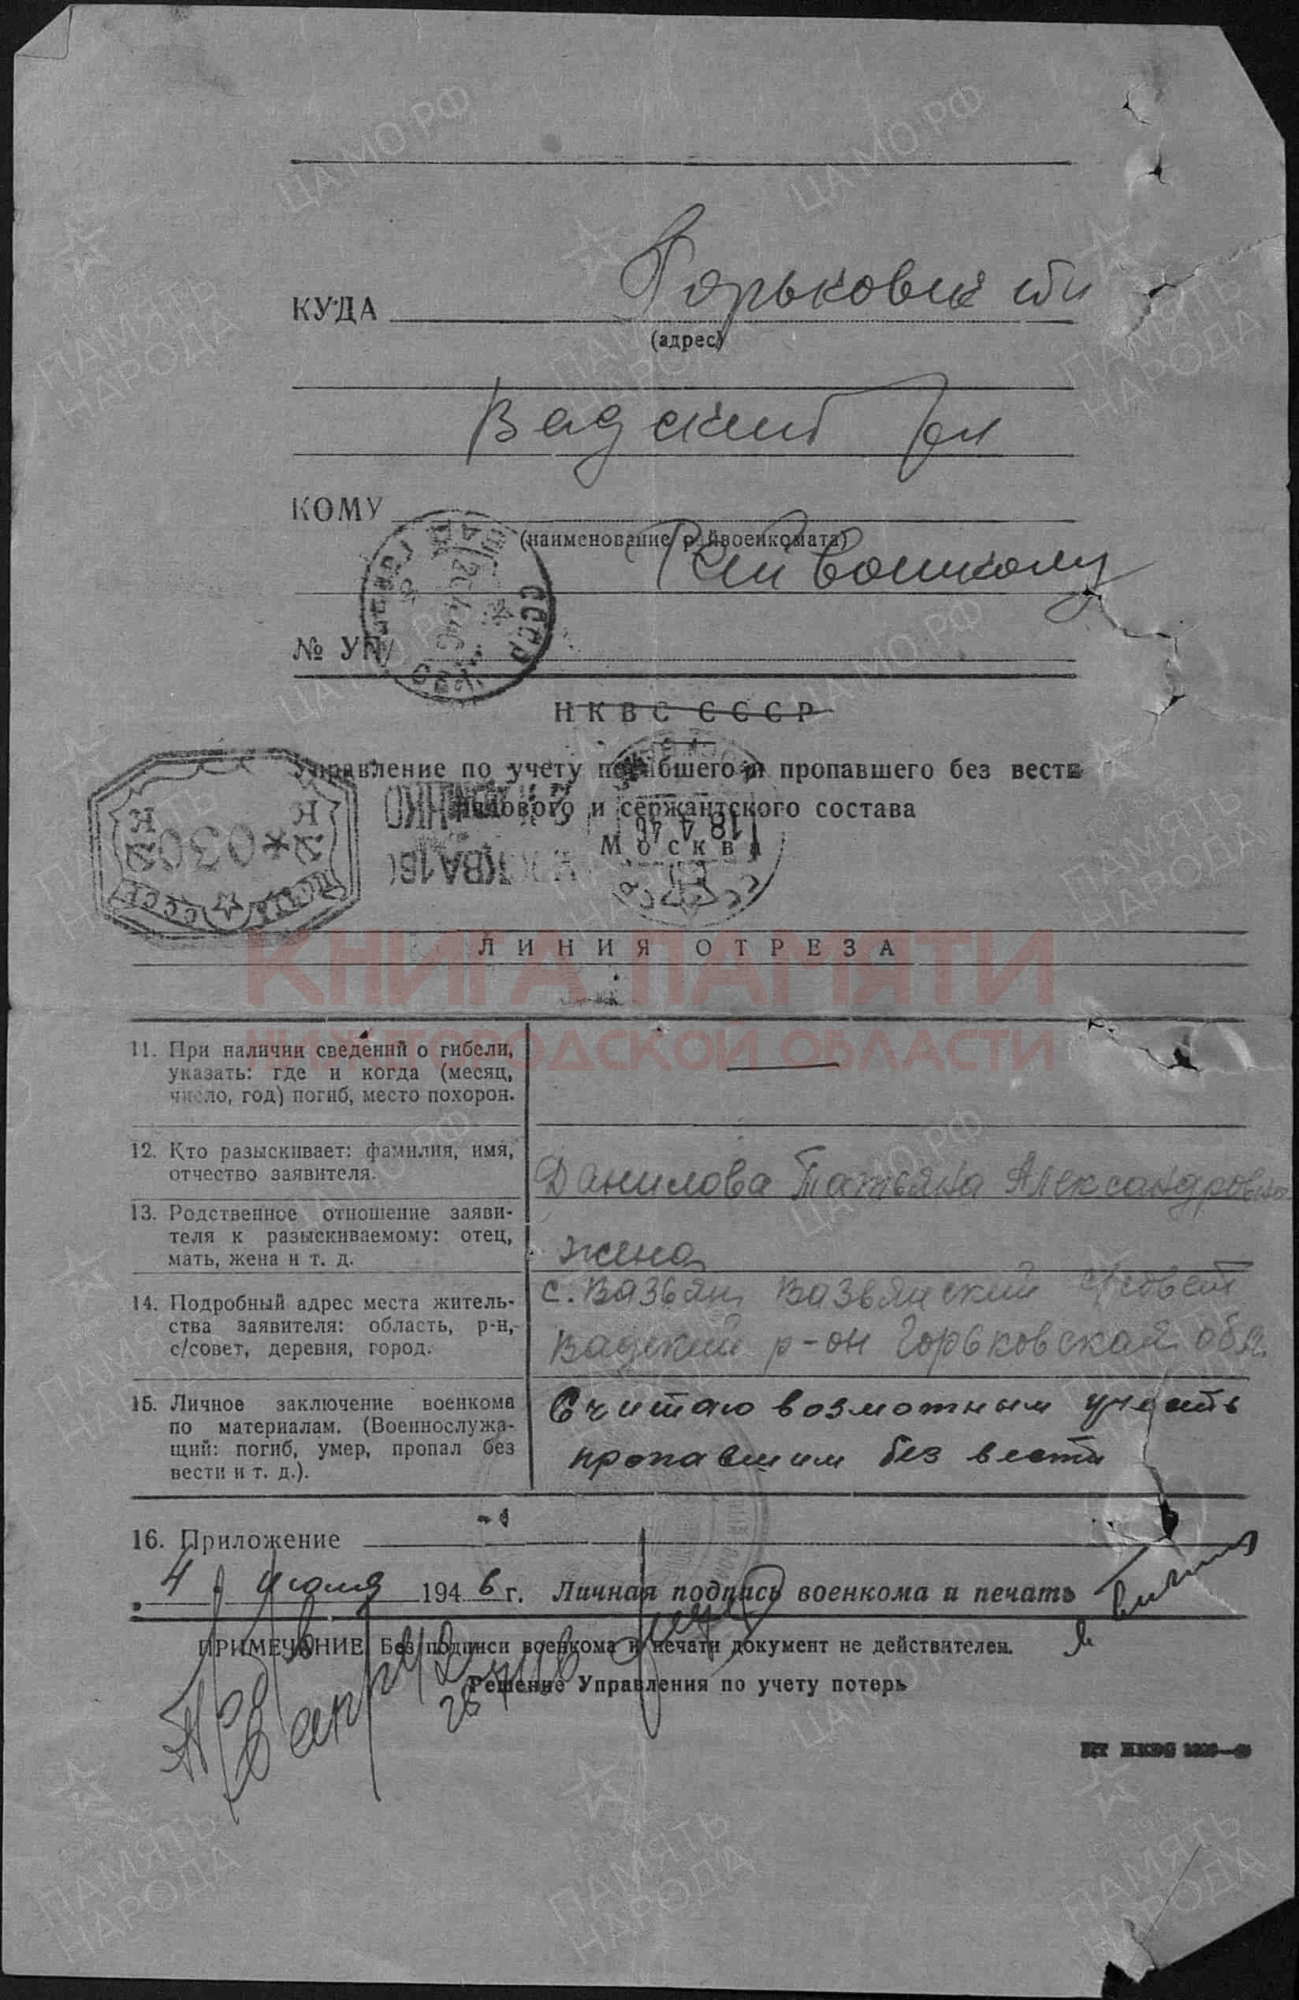 КУДА Горьковск обл
(адрес)
Вадский рн
КОМУ
(наименование райвоенкомата)
Райвоенкому
№ УП/
СССР
НКВС СССР
Управление по учету погибшего и пропавшего без вести
рядового и сержантского состава
Москва
18 4 46
0302
СССР
ЛИНИЯ ОТРЕЗА
КНИГА ПАМЯТИ
НИЖЕГОРОДСКОЙ ОБЛАСТИ
11. При наличии сведений о гибели,
указать: где и когда (месяц,
число, год) погиб, место похорон.
—
12. Кто разыскивает: фамилия, имя,
отчество заявителя.
Данилова Татьяна Александровна
13. Родственное отношение заяви-
теля к разыскиваемому: отец,
мать, жена и т. д.
жена
14. Подробный адрес места житель-
ства заявителя: область, р-н,
с/совет, деревня, город.
с. Вазьян, Вазьянский с/совет
Вадский р-он Горьковская обл.
15. Личное заключение военкома
по материалам. (Военнослужа-
щий: погиб, умер, пропал без
вести и т. д.).
Считаю возможным учесть
пропавшим без вести
16. Приложение
4 июля 1946 г. Личная подпись военкома и печать
ПРИМЕЧАНИЕ: Без подписи военкома и печати документ не действителен.
Решение Управления по учету потерь
ПАМЯТЬ НАРОДА
ЦАМО.РФ